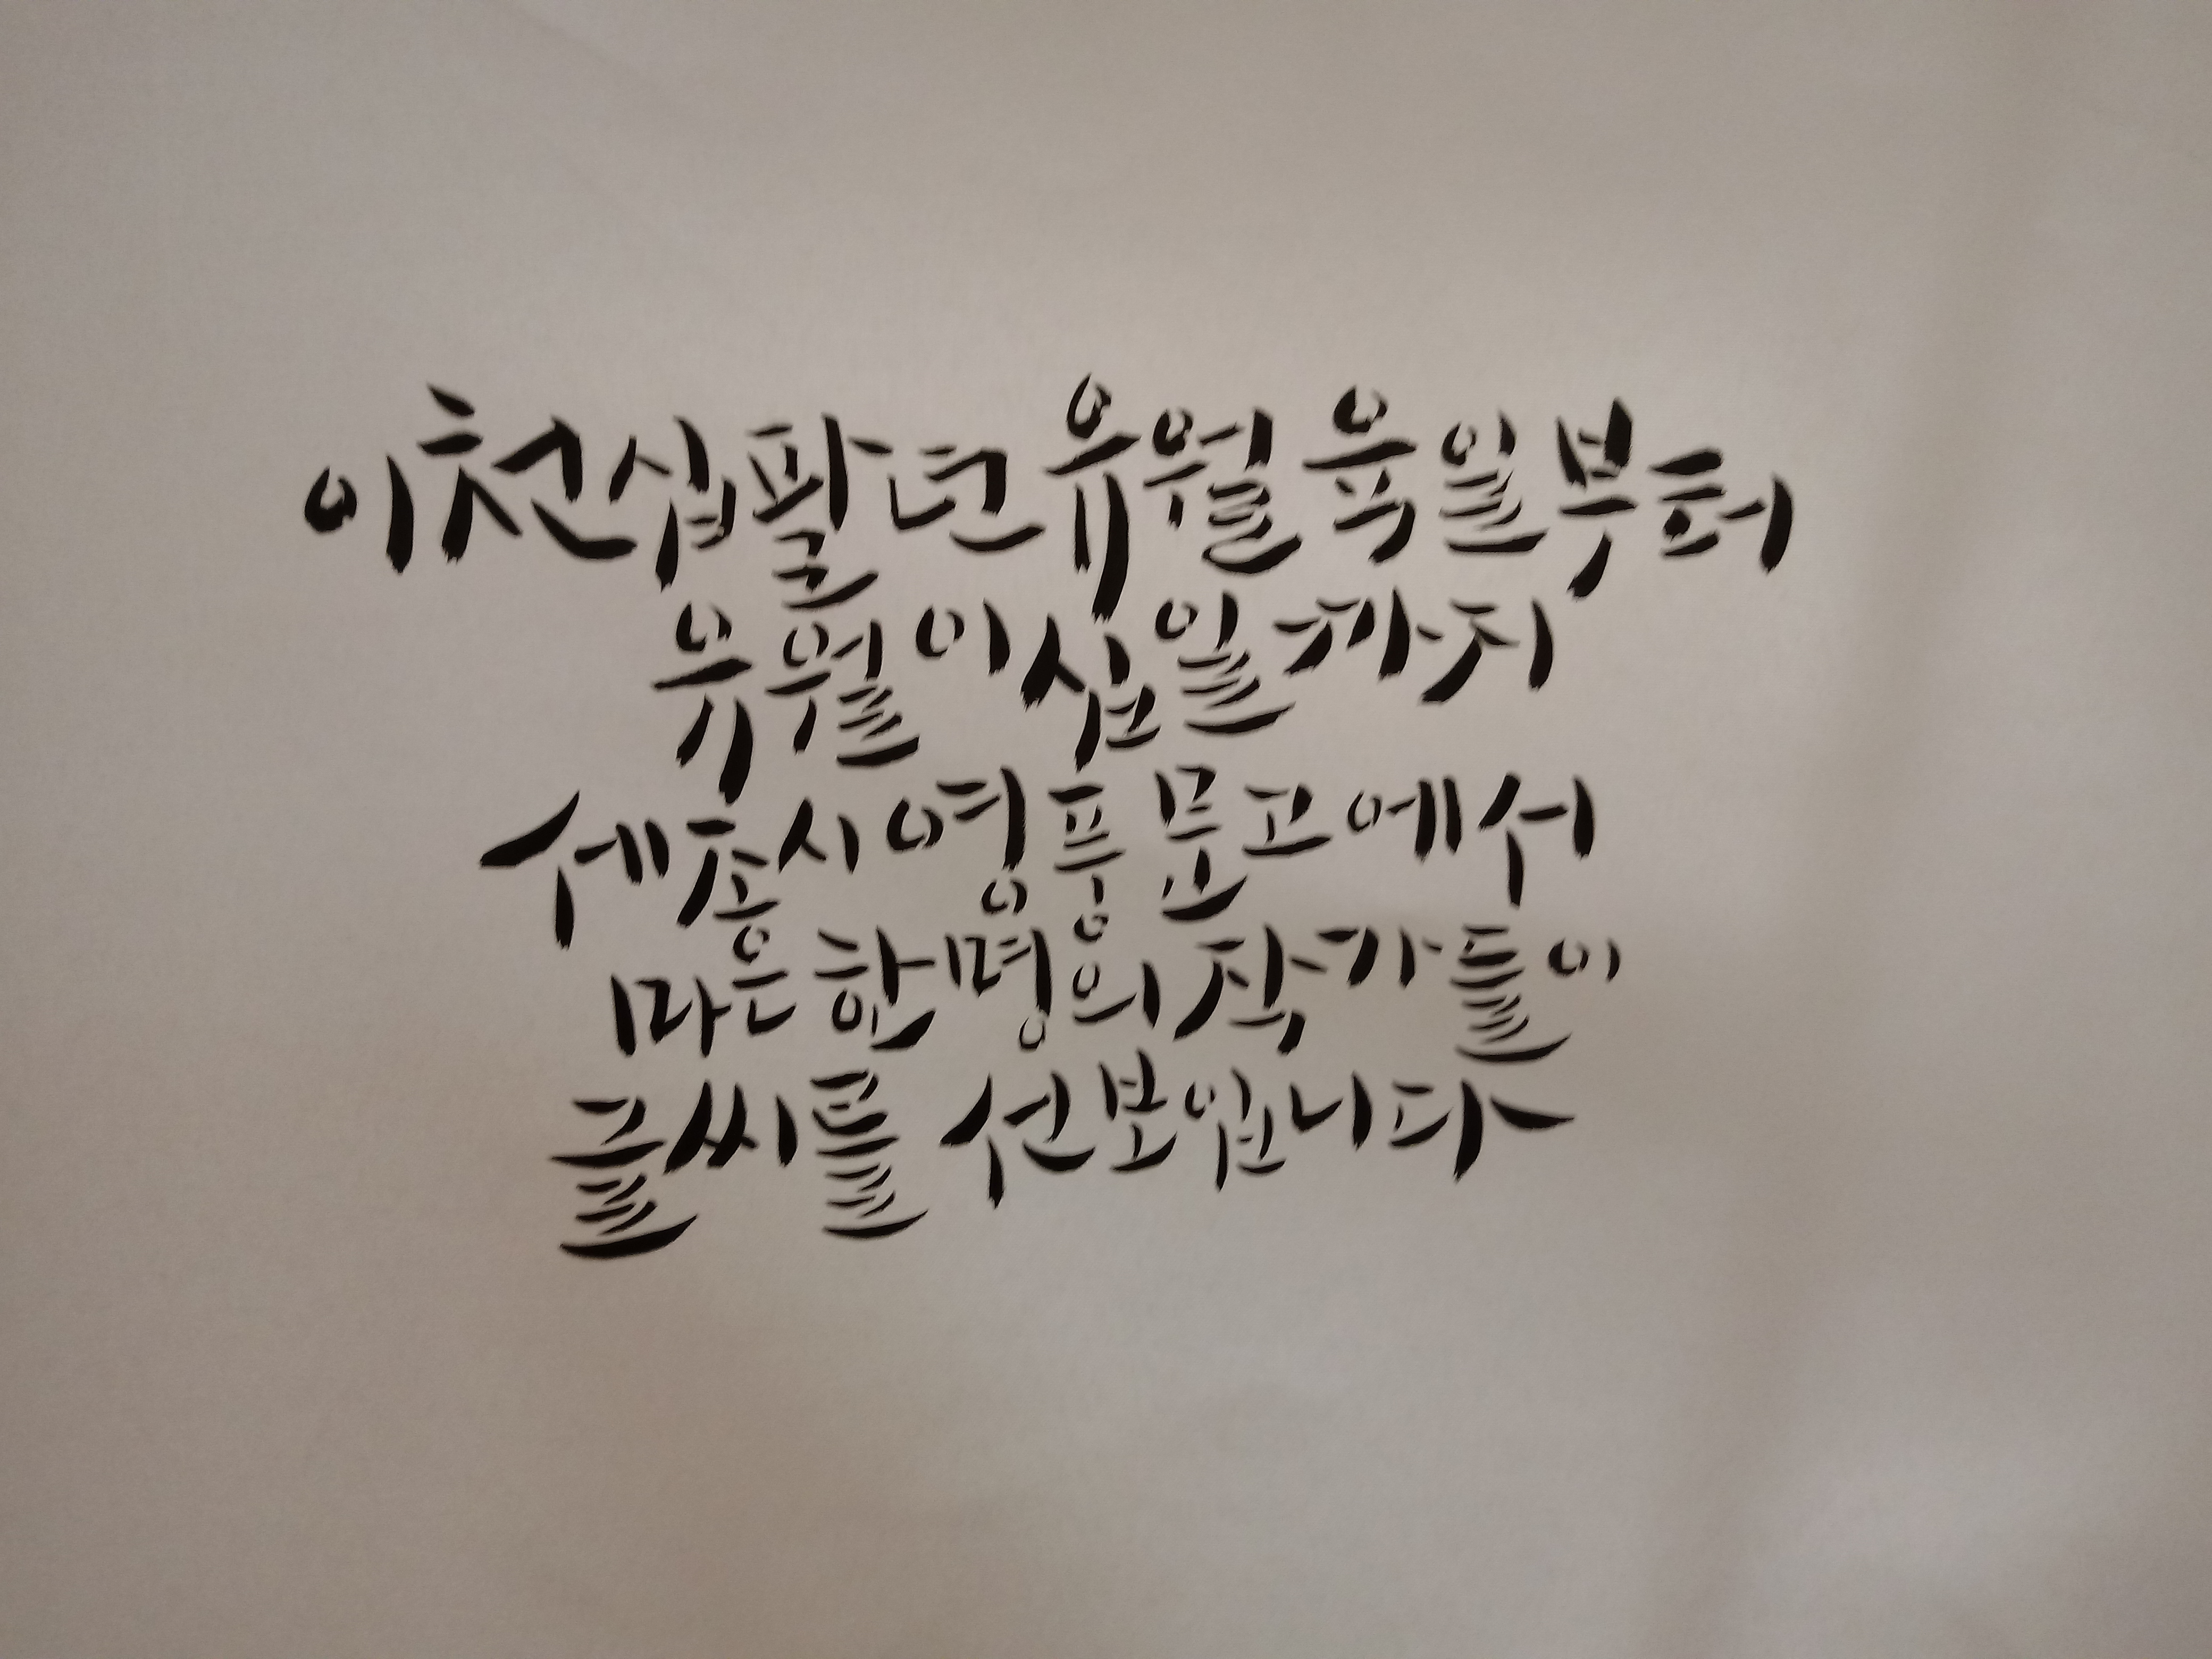 이천십팔년 유월 육일부터
유월 이십일까지
세종시 영풍문고에서
마흔한명의 작가들이
글씨를 선보입니다